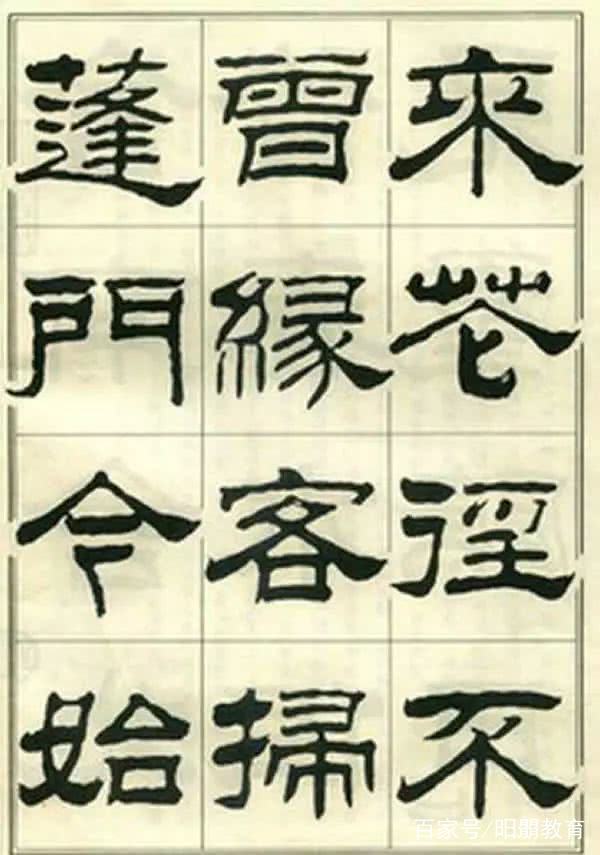 來花徑不
曾緣客掃
蓬門今始
百家号/昭朤教育